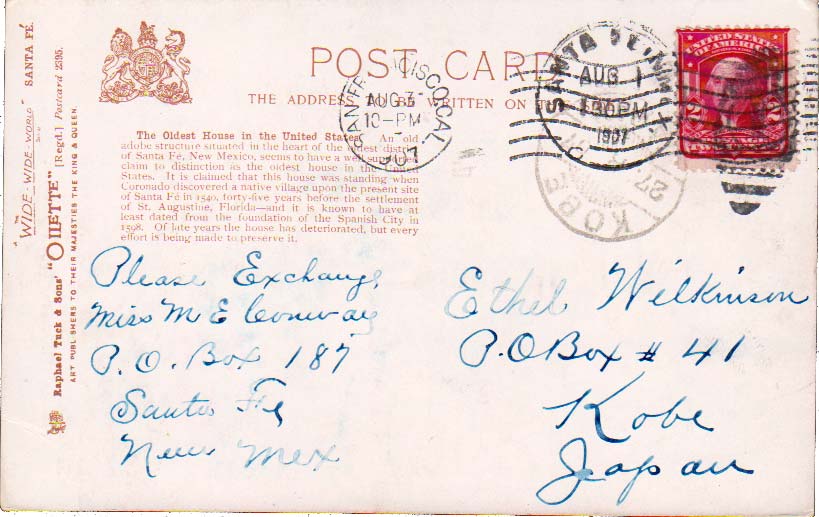 POST CARD
THE ADDRESS TO BE WRITTEN ON
The Oldest House in the United States. An old
adobe structure situated in the heart of the oldest district
of Santa Fé, New Mexico, seems to have a well supported
claim to distinction as the oldest house in the United
States. It is claimed that this house was standing when
Coronado discovered a native village upon the present site
of Santa Fé in 1540, forty-five years before the settlement
of St. Augustine, Florida—and it is known to have at
least dated from the foundation of the Spanish City in
1598. Of late years the house has deteriorated, but every
effort is being made to preserve it.
"THE
"WIDE-WIDE-WORLD" SANTA FÉ.
Raphael Tuck & Sons' "OILETTE" [Regd.] Postcard 2395.
ART PUBLISHERS TO THEIR MAJESTIES THE KING & QUEEN.
SAN FRANCISCO, CAL.
AUG 3
10-PM
SANTA FE, N.M.
AUG 1
130PM
1907
KOBE
27
UNITED STATES
OF AMERICA
2 2
Please Exchange
Miss M E Conway
P.O. Box 187
Santa Fe
New Mex
Ethel Wilkinson
P.O Box # 41
Kobe
Japan